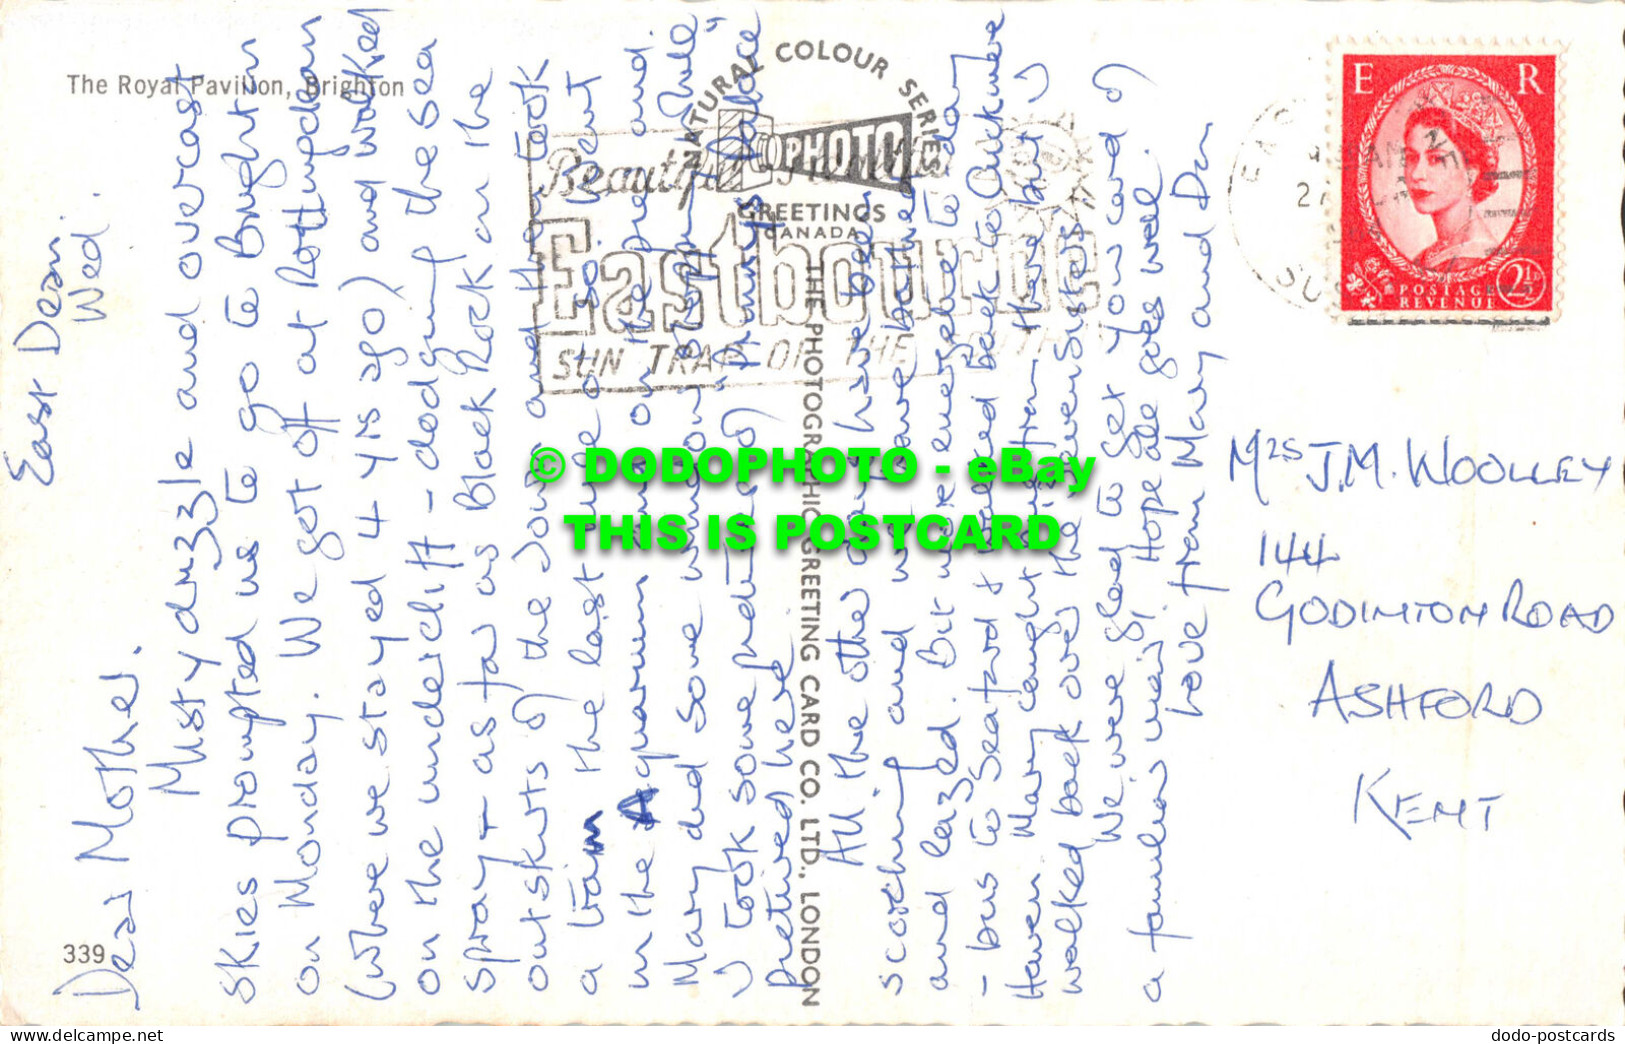 The Royal Pavilion, Brighton
339
NATURAL COLOUR SERIES
PHOTO
GREETINGS
CANADA
THE PHOTOGRAPHIC GREETING CARD CO. LTD., LONDON
Beautiful
Eastbourne
SUN TRAP OF THE SOUTH
E R
POSTAGE
REVENUE
2½D
East Dean
Wed.
Dear Mother.
Misty drizzle and overcast
skies prompted us to go to Brighton
on Monday. We got off at Rottingdean
(where we stayed 4 yrs ago) and walked
on the undercliff - dodging the sea
spray - as far as Black Rock on the
outskirts of the town and then took
a tram the last mile or so. Went
in the Aquarium and on the pier and.
Mary did some window shopping while
I took some pictures of Prinny's palace
pictured here
All the other days have been
scorching and we have bathed
and lazed. But were energetic to-day
- bus to Seaford & walked back to Cuckmere
Haven Mary caught bus from there but I
walked back over the Seven Sisters
We were glad to get your card &
a family mail, Hope all goes well.
Love from Mary and Don
Mrs J.M. WOOLLEY
144
GODINTON ROAD
ASHFORD
KENT
© DODOPHOTO - eBay
THIS IS POSTCARD
www.delcampe.net
dodo-postcards